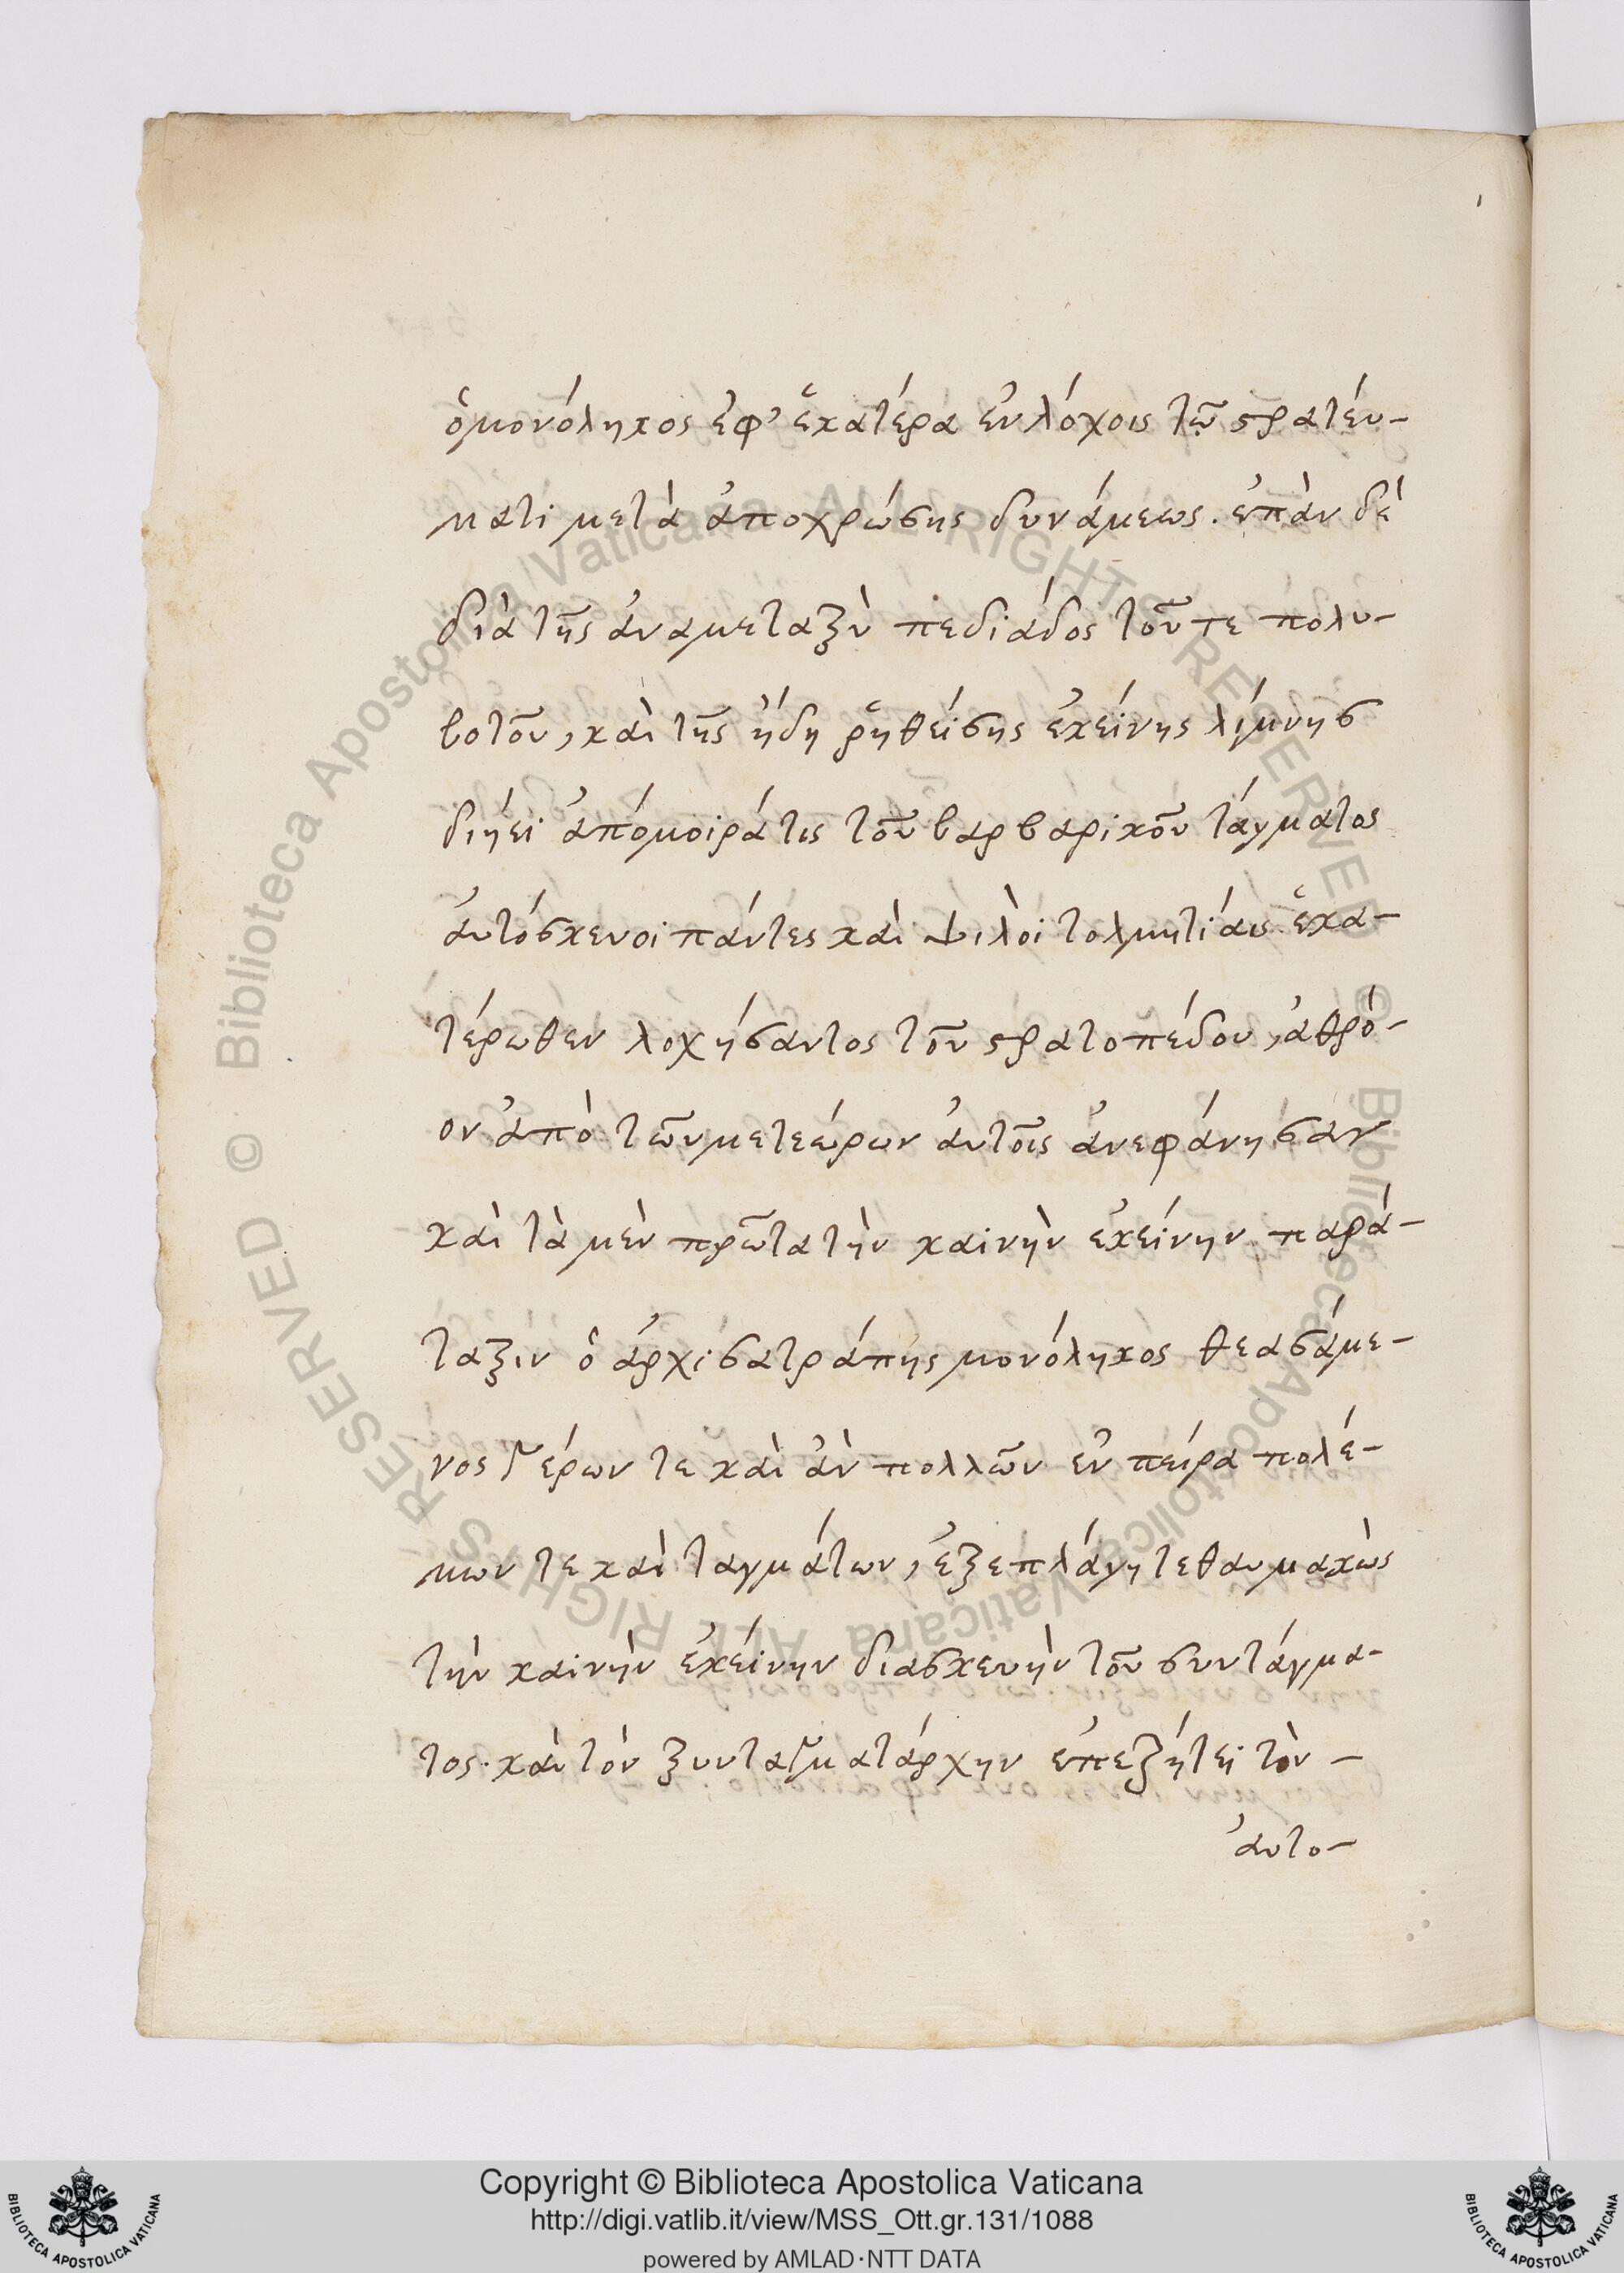 ὁμονόληκος ἐφ' ἑκατέρα ἐν λόχοις τῷ στρατέυ-
ματι μετὰ ἀποχρώσης δυνάμεως. ἐπὰν δὲ
διὰ τῆς ἀναμεταξὺ πεδιάδος τοῦ τε πολυ-
βοτοῦ, καὶ τῆς ἤδη ῥηθείσης ἐκείνης λίμνης
διήει ἀπόμοιρά τις τοῦ βαρβαρικοῦ τάγματος
ἀυτόσκευοι πάντες καὶ ψιλοὶ τολμητίαις ἑκα-
τέρωθεν λοχήσαντος τοῦ στρατοπέδου, ἀθρό-
ον ἀπὸ τῶν μετεώρων ἀυτοῖς ἀνεφάνησαν
καὶ τὰ μὲν πρῶτα τὴν καινὴν ἐκείνην παρά-
ταξιν ὁ ἀρχισατράπης μονόληκος θεασάμε-
νος γέρων τε καὶ ἀν πολλῶν ἐν πείρα πολέ-
μων τε καὶ ταγμάτων, ἐξεπλάγη τεθαυμακὼς
τὴν καινὴν ἐκείνην διασκευὴν τοῦ συντάγμα-
τος. καὶ τὸν ξυνταγματάρχην ἐπεζήτει τὸν -
ἀυτο-
Copyright © Biblioteca Apostolica Vaticana
http://digi.vatlib.it/view/MSS_Ott.gr.131/1088
powered by AMLAD·NTT DATA